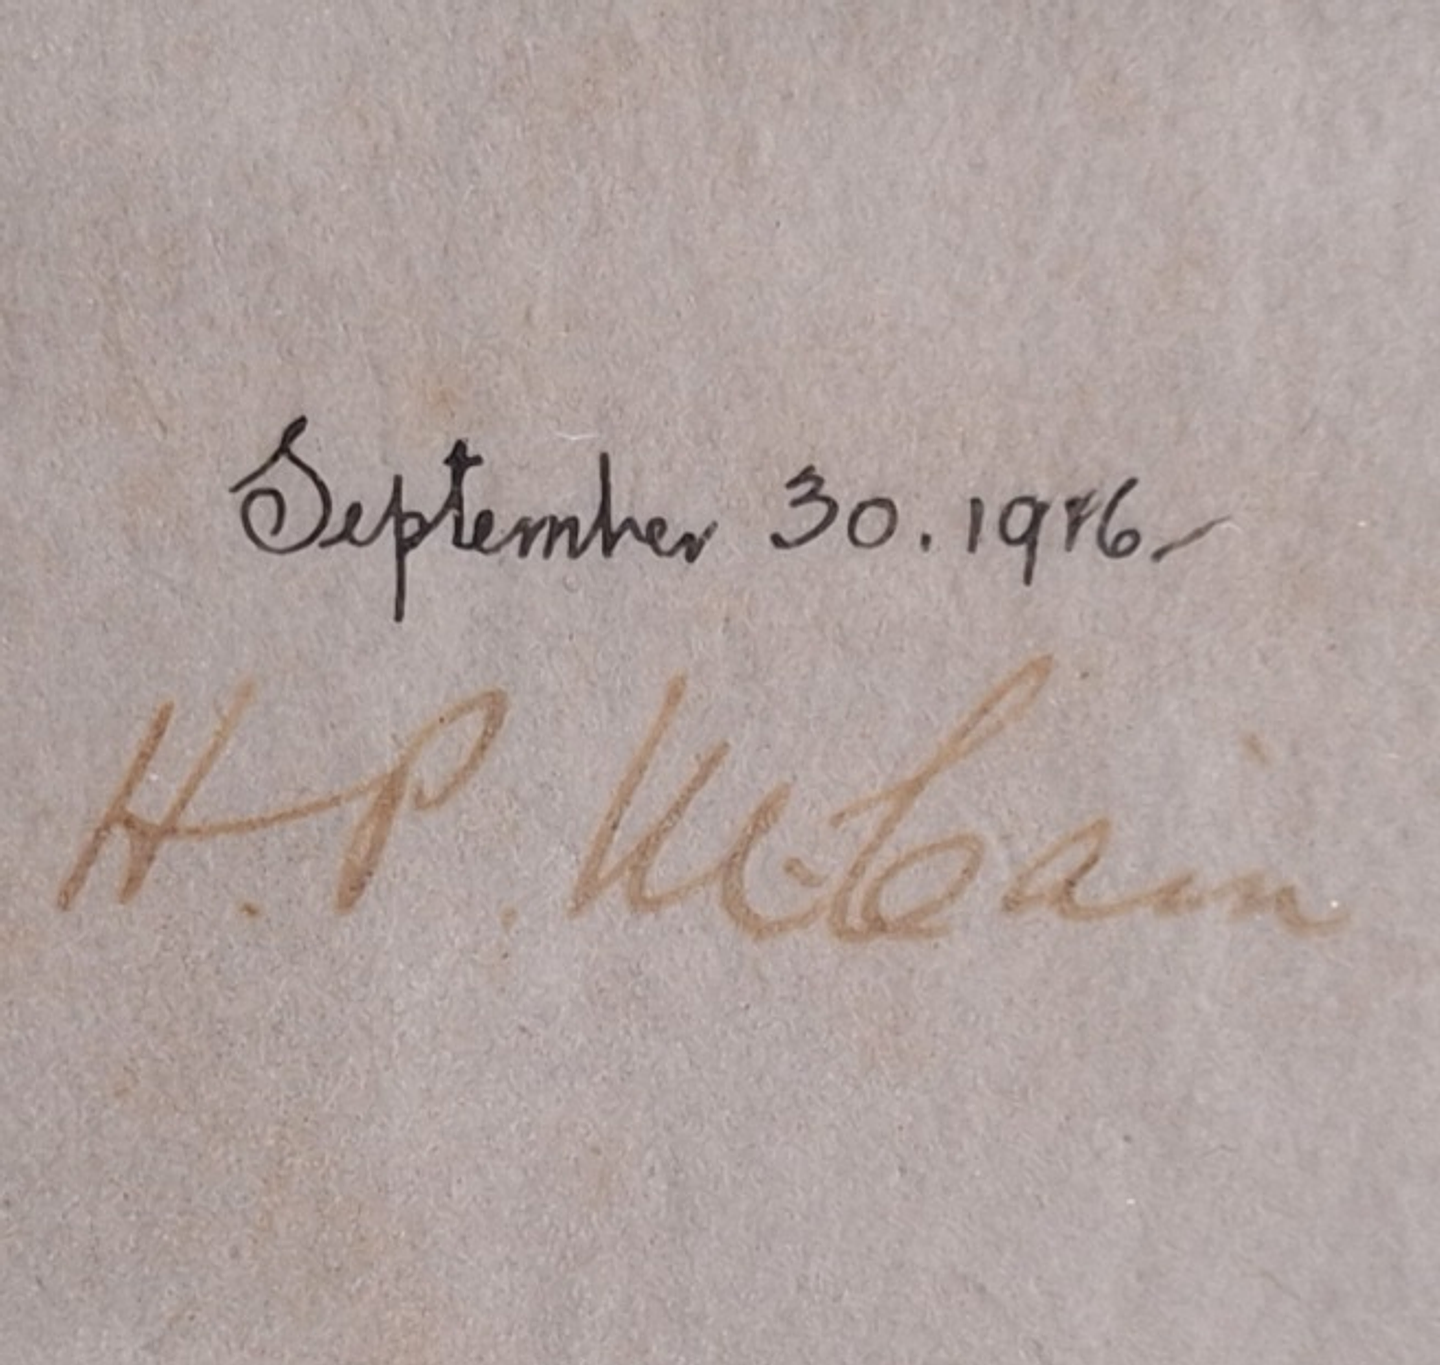 September 30. 1916
H. P. McCain